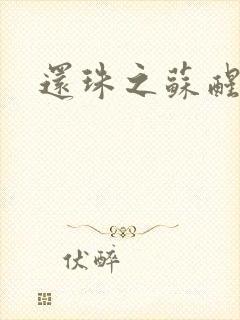 還珠之蘇醒
伏醉